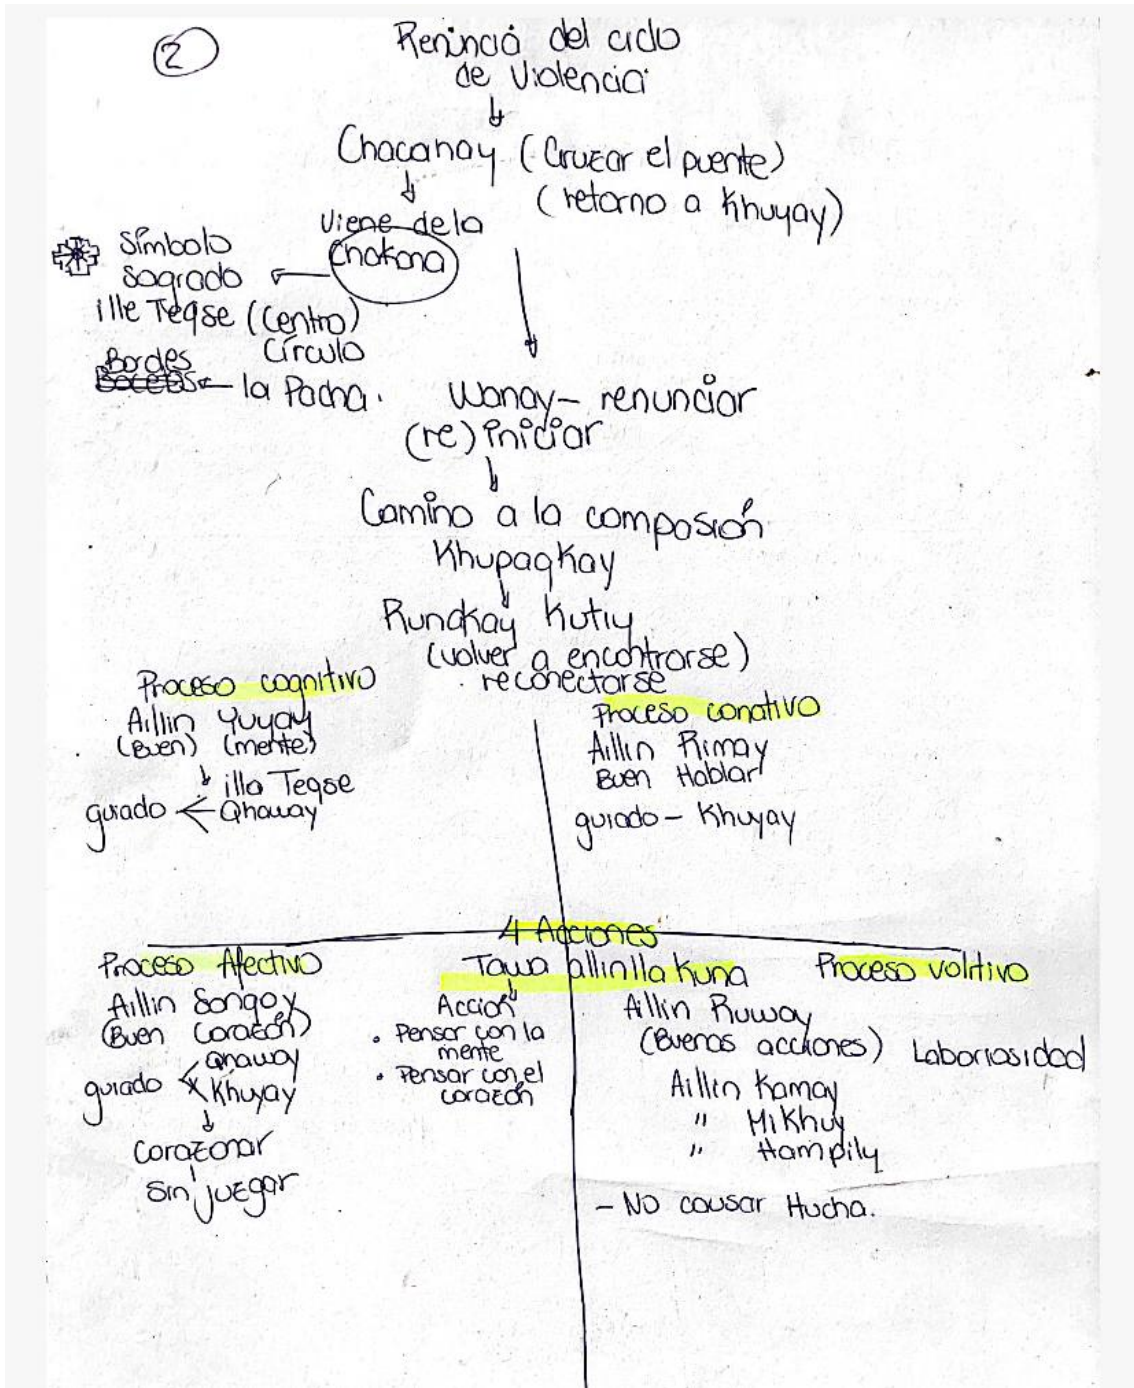 2
Renuncia del ciclo
de Violencia
Chacanay (Cruzar el puente)
(retorno a Khuyay)
Viene de la
Chakana
Símbolo
Sagrado
ille Teqse (Centro)
Círculo
Bordes
la Pacha.
Wanay - renunciar
(re) iniciar
Camino a la composión
Khupaqkay
Runakay Kutiy
(volver a encontrarse)
reconectarse
Proceso cognitivo
Aillin Yuyay
(Buen) (mente)
illa Teqse
guiado < Qhaway
Proceso conativo
Aillin Rimay
Buen Hablar
guiado - Khuyay
4 Acciones
Tawa allinlla Kuna
Acción
• Pensar con la
mente
• Pensar con el
corazón
Proceso Afectivo
Aillin Sonqoy
(Buen Corazón)
Qhaway
guiado < Khuyay
Corazonar
Sin juzgar
Proceso volitivo
Aillin Ruway
(Buenas acciones) Laboriosidad
Aillin Kamay
" Mikhuy
" Hampily
- No causar Hucha.